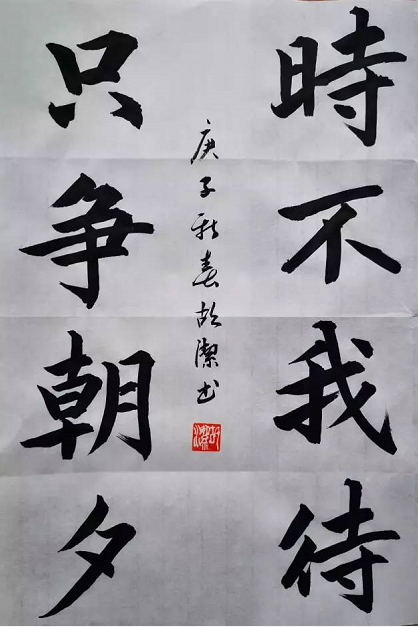 時不我待
只争朝夕
庚子新春胡潔书